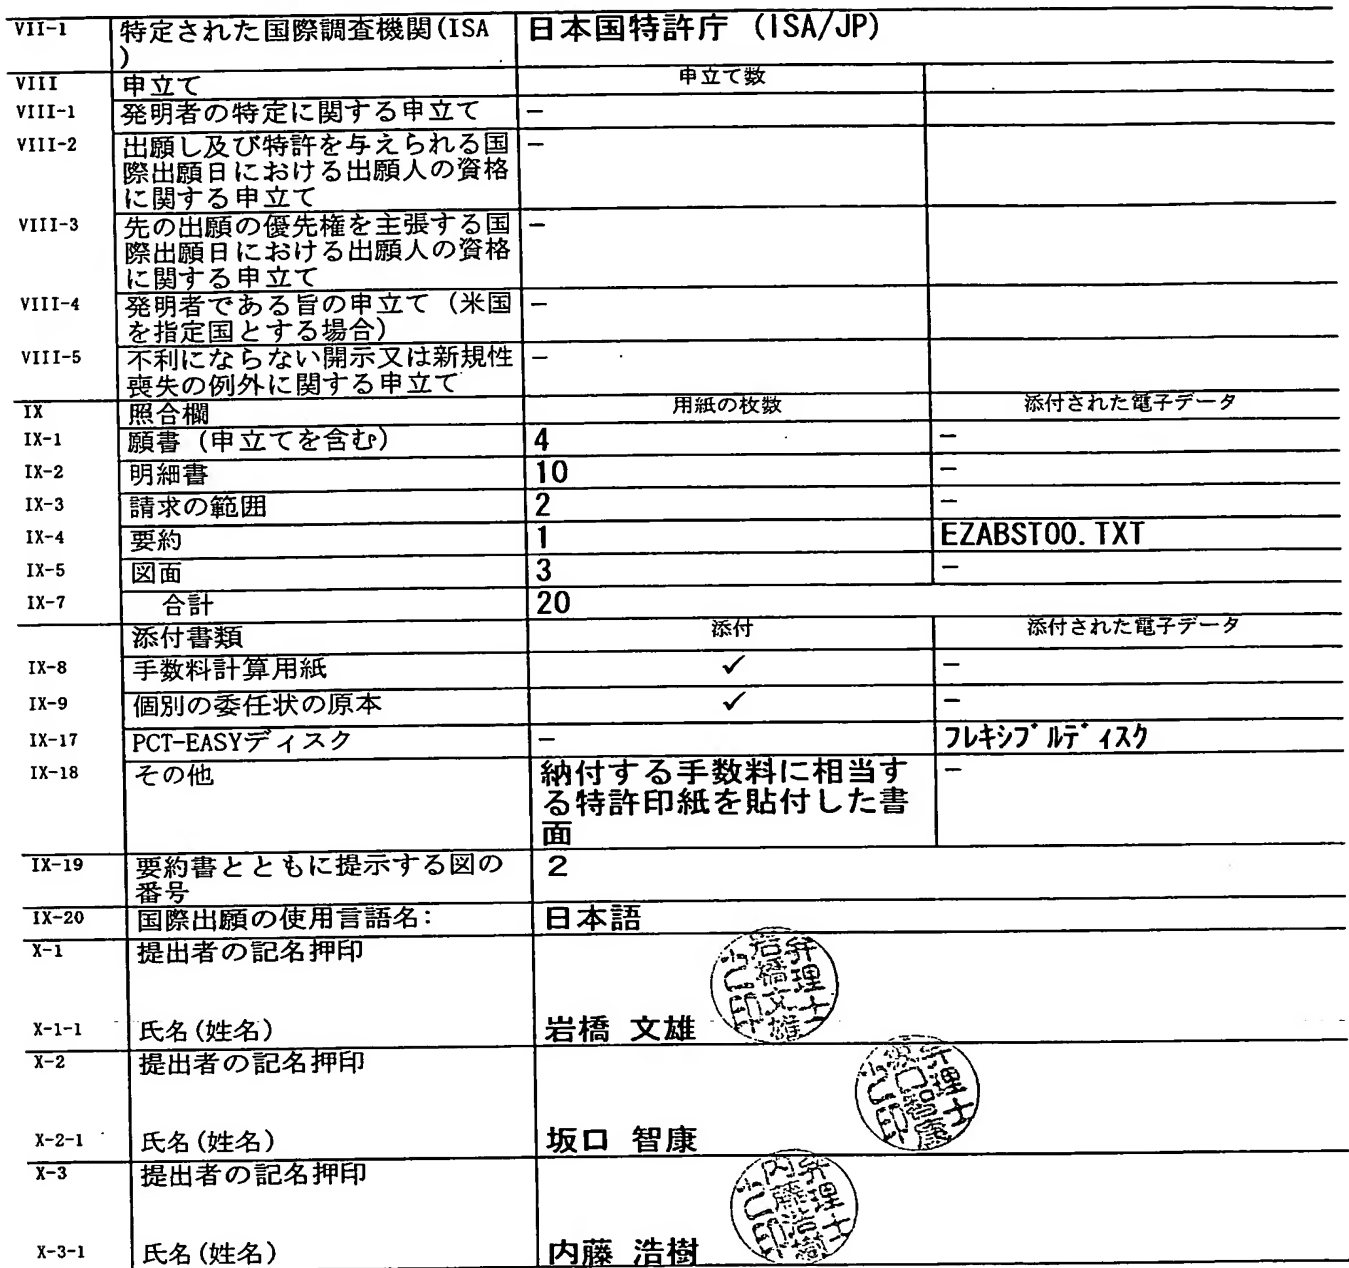 VII-1 特定された国際調査機関(ISA 日本国特許庁 (ISA/JP)
)
VIII 申立て 申立て数
VIII-1 発明者の特定に関する申立て -
VIII-2 出願し及び特許を与えられる国 -
際出願日における出願人の資格
に関する申立て
VIII-3 先の出願の優先権を主張する国 -
際出願日における出願人の資格
に関する申立て
VIII-4 発明者である旨の申立て (米国 -
を指定国とする場合)
VIII-5 不利にならない開示又は新規性 -
喪失の例外に関する申立て
IX 照合欄 用紙の枚数 添付された電子データ
IX-1 願書 (申立てを含む) 4 -
IX-2 明細書 10 -
IX-3 請求の範囲 2 -
IX-4 要約 1 EZABST00.TXT
IX-5 図面 3 -
IX-7 合計 20
添付書類 添付 添付された電子データ
IX-8 手数料計算用紙 ✓ -
IX-9 個別の委任状の原本 ✓ -
IX-17 PCT-EASYディスク - フレキシブルディスク
IX-18 その他 納付する手数料に相当す -
る特許印紙を貼付した書
面
IX-19 要約書とともに提示する図の 2
番号
IX-20 国際出願の使用言語名: 日本語
X-1 提出者の記名押印
弁理士
岩橋文雄
之印
X-1-1 氏名(姓名) 岩橋 文雄
X-2 提出者の記名押印
弁理士
坂口智康
之印
X-2-1 氏名(姓名) 坂口 智康
X-3 提出者の記名押印
弁理士
内藤浩樹
之印
X-3-1 氏名(姓名) 内藤 浩樹